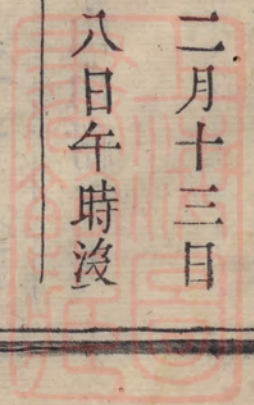 二月十三日
八日午時没